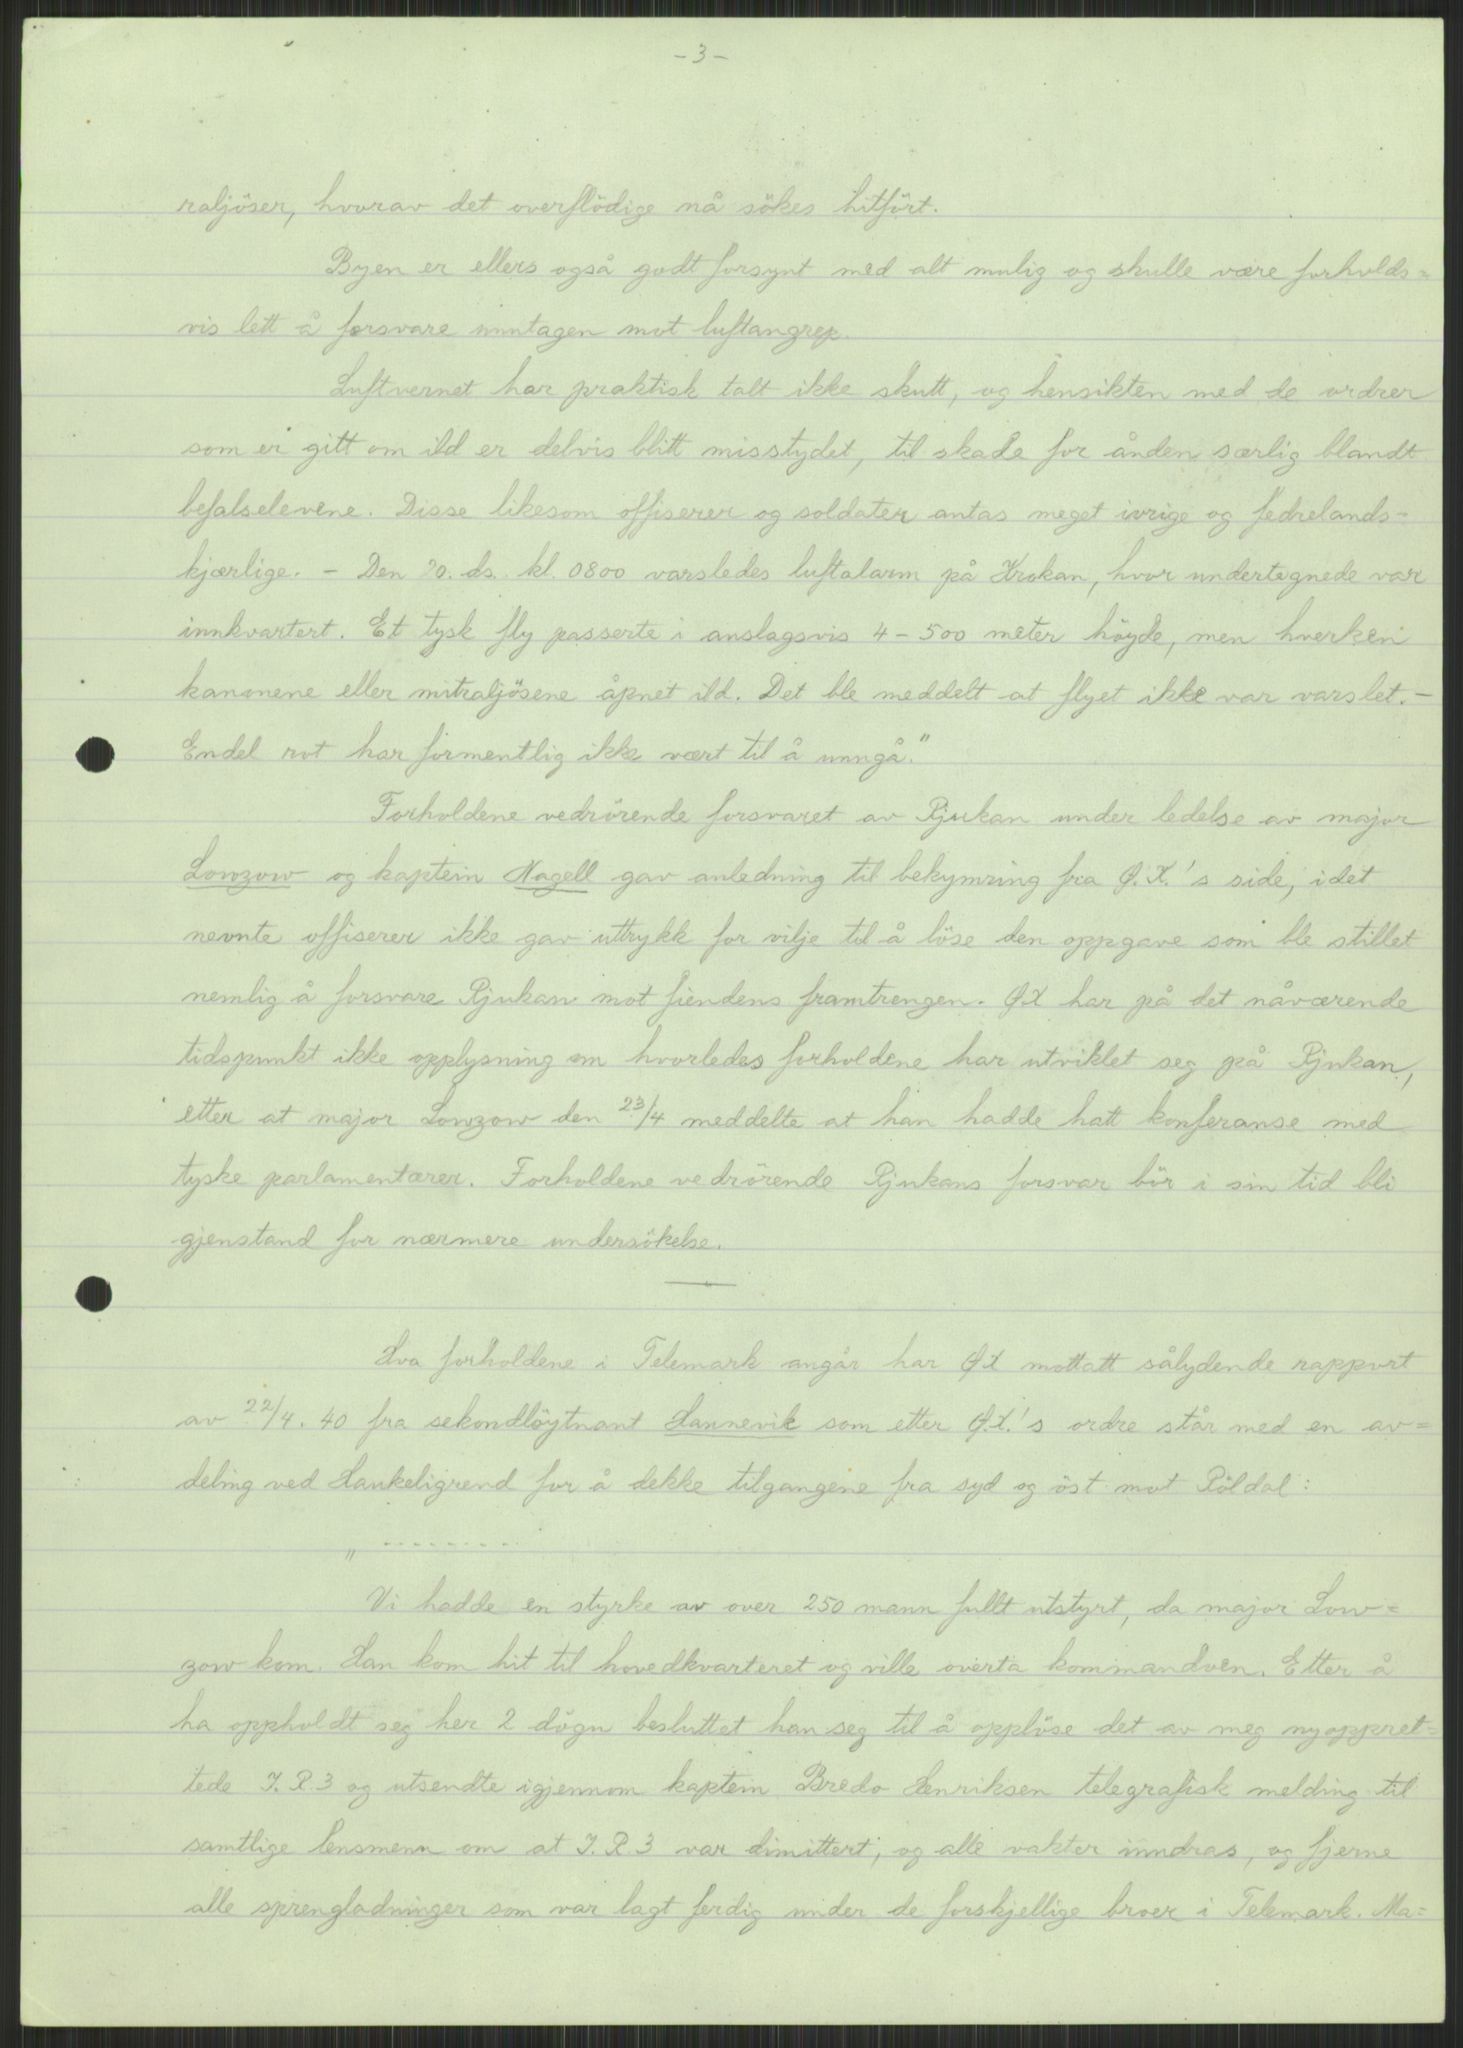 - 3 -
raljöser, hvorav det overflödige nå sökes hitfört.
Byen er ellers også godt forsynt med alt mulig og skulle være forholds=
vis lett å forsvare unntagen mot luftangrep.
Luftvernet har praktisk talt ikke skutt, og hensikten med de ordrer
som er gitt om ild er delvis blitt misstydet, til skade for ånden særlig blandt
befalselevene. Disse likesom offiserer og soldater antas meget ivrige og fedrelands=
kjærlige. - Den 20. ds. kl. 0800 varsledes luftalarm på Krokan, hvor undertegnede var
innkvartert. Et tysk fly passerte i anslagsvis 4 - 500 meter höyde, men hverken
kanonene eller mitraljösene åpnet ild. Det ble meddelt at flyet ikke var varslet. -
Endel rot har formentlig ikke vært til å unngå."
Forholdene vedrörende forsvaret av Rjukan under ledelse av major
Lowzow og kaptein Nagell gav anledning til bekymring fra Ø.K.'s side, idet
nevnte offiserer ikke gav uttrykk for vilje til å löse den oppgave som ble stillet
nemlig å forsvare Rjukan mot fiendens framtrengen. ØK har på det nåværende
tidspunkt ikke opplysning om hvorledes forholdene har utviklet seg på Rjukan,
etter at major Lowzow den 23/4 meddelte at han hadde hatt konferanse med
tyske parlamentærer. Forholdene vedrörende Rjukans forsvar bör i sin tid bli
gjenstand for nærmere undersökelse.
Hva forholdene i Telemark angår har ØK mottatt sålydende rapport
av 22/4. 40 fra sekondlöytnant Hannevik som etter Ø.K.'s ordre står med en av=
deling ved Haukeligrend for å dekke tilgangene fra syd og öst mot Röldal:
" - - - - - - - - -
Vi hadde en styrke av over 250 mann fullt utstyrt, da major Low=
zow kom. Han kom hit til hovedkvarteret og ville overta kommandoen. Etter å
ha oppholdt seg her 2 dögn besluttet han seg til å opplöse det av meg nyoppret=
tede I.R.3 og utsendte igjennom kaptein Bredo Henriksen telegrafisk melding til
samtlige lensmenn om at I.R.3 var dimittert, og alle vakter inndras, og fjerne
alle sprengladninger som var lagt ferdig under de forskjellige broer i Telemark. Ma=